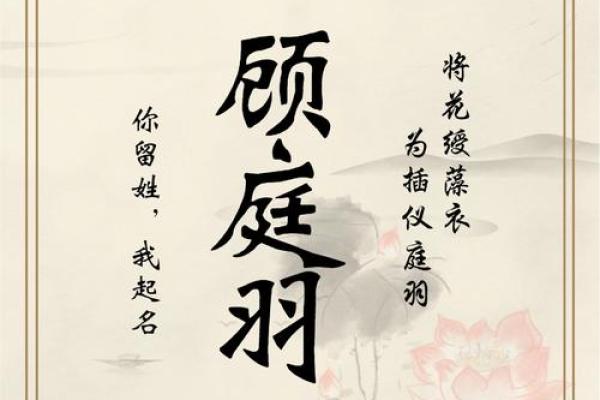 将花绶藻衣
为插仪庭羽
顾庭羽
你留姓，我起名